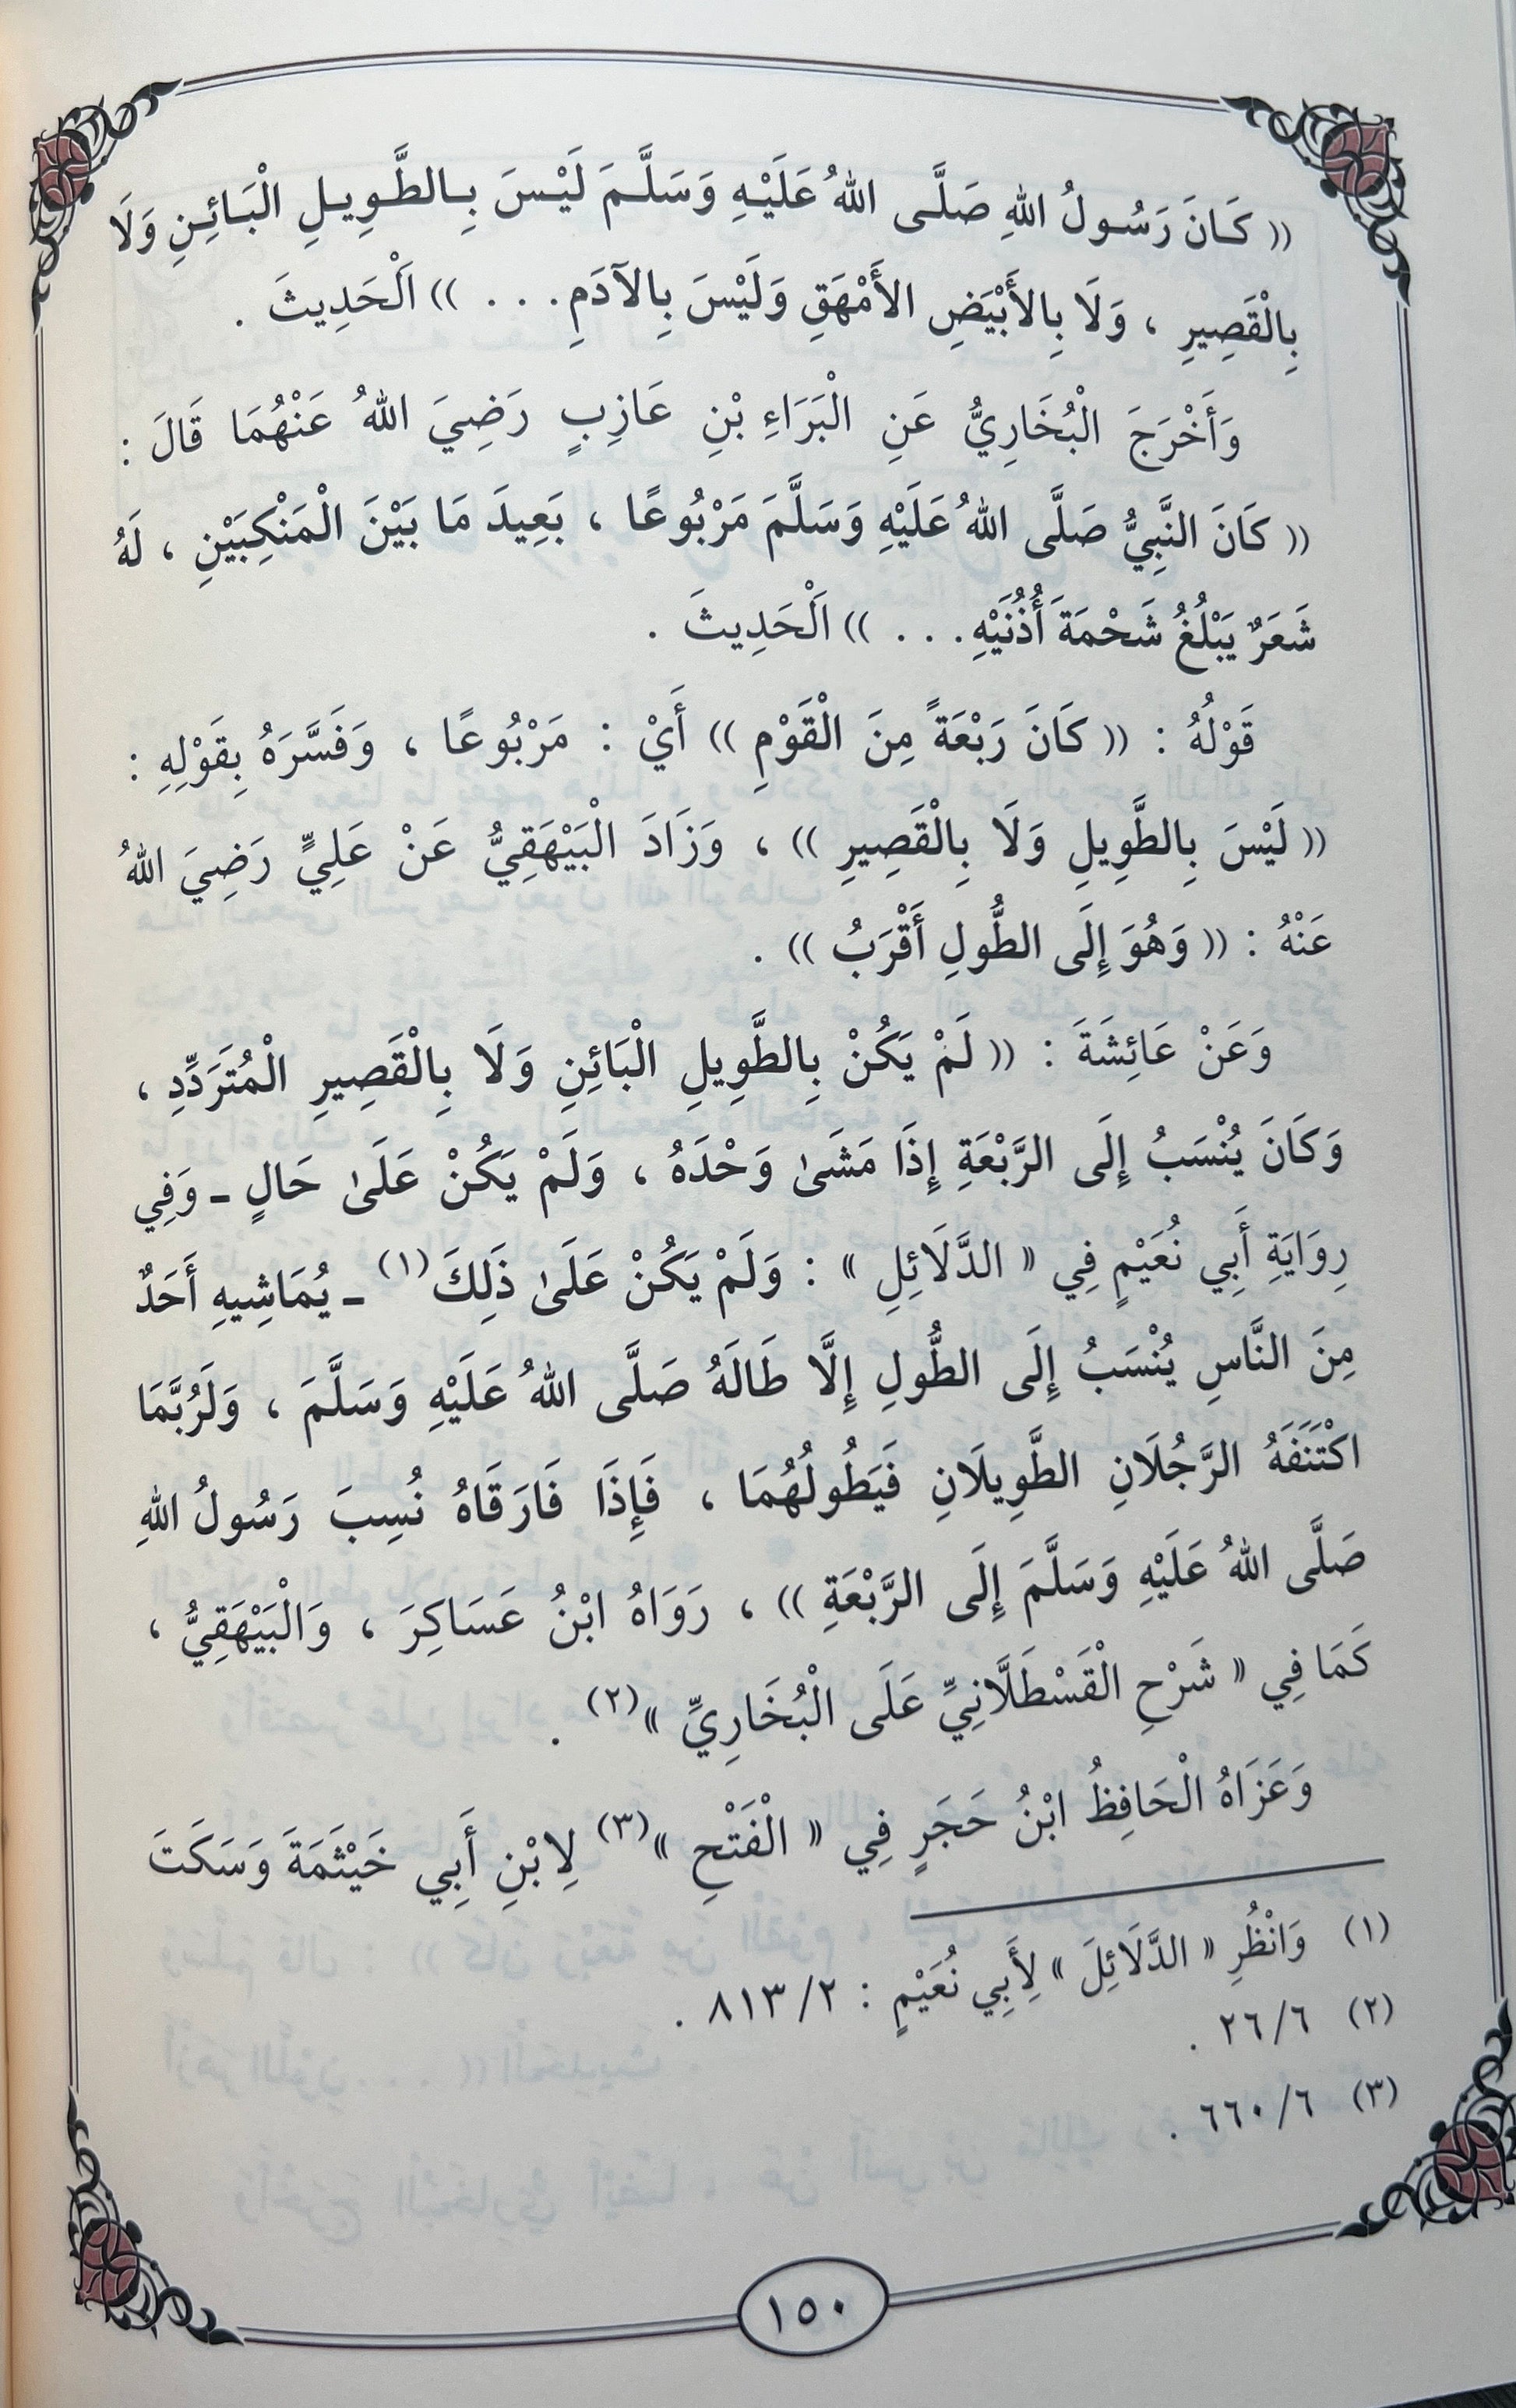 (( كَانَ رَسُولُ اللهِ صَلَّى اللهُ عَلَيْهِ وَسَلَّمَ لَيْسَ بِالطَّوِيلِ الْبَائِنِ وَلَا
بِالْقَصِيرِ ، وَلَا بِالأَبْيَضِ الأَمْهَقِ وَلَيْسَ بِالآدَمِ . . . )) اَلْحَدِيثَ .
وَأَخْرَجَ الْبُخَارِيُّ عَنِ الْبَرَاءِ بْنِ عَازِبٍ رَضِيَ اللهُ عَنْهُمَا قَالَ :
(( كَانَ النَّبِيُّ صَلَّى اللهُ عَلَيْهِ وَسَلَّمَ مَرْبُوعًا ، بَعِيدَ مَا بَيْنَ الْمَنْكِبَيْنِ ، لَهُ
شَعَرٌ يَبْلُغُ شَحْمَةَ أُذُنَيْهِ . . . )) اَلْحَدِيثَ .
قَوْلُهُ : (( كَانَ رَبْعَةً مِنَ الْقَوْمِ )) أَيْ : مَرْبُوعًا ، وَفَسَّرَهُ بِقَوْلِهِ :
(( لَيْسَ بِالطَّوِيلِ وَلَا بِالْقَصِيرِ )) ، وَزَادَ الْبَيْهَقِيُّ عَنْ عَلِيٍّ رَضِيَ اللهُ
عَنْهُ : (( وَهُوَ إِلَى الطُّولِ أَقْرَبُ )) .
وَعَنْ عَائِشَةَ : (( لَمْ يَكُنْ بِالطَّوِيلِ الْبَائِنِ وَلَا بِالْقَصِيرِ الْمُتَرَدِّدِ ،
وَكَانَ يُنْسَبُ إِلَى الرَّبْعَةِ إِذَا مَشَىٰ وَحْدَهُ ، وَلَمْ يَكُنْ عَلَىٰ حَالٍ ـ وَفِي
رِوَايَةِ أَبِي نُعَيْمٍ فِي « الدَّلَائِلِ » : وَلَمْ يَكُنْ عَلَىٰ ذَلِكَ (١) ـ يُمَاشِيهِ أَحَدٌ
مِنَ النَّاسِ يُنْسَبُ إِلَى الطُّولِ إِلَّا طَالَهُ صَلَّى اللهُ عَلَيْهِ وَسَلَّمَ ، وَلَرُبَّمَا
اكْتَنَفَهُ الرَّجُلَانِ الطَّوِيلَانِ فَيَطُولُهُمَا ، فَإِذَا فَارَقَاهُ نُسِبَ رَسُولُ اللهِ
صَلَّى اللهُ عَلَيْهِ وَسَلَّمَ إِلَى الرَّبْعَةِ )) ، رَوَاهُ ابْنُ عَسَاكِرَ ، وَالْبَيْهَقِيُّ ،
كَمَا فِي « شَرْحِ الْقَسْطَلَّانِيِّ عَلَى الْبُخَارِيِّ » (٢) .
وَعَزَاهُ الْحَافِظُ ابْنُ حَجَرٍ فِي « الْفَتْحِ » (٣) لِابْنِ أَبِي خَيْثَمَةَ وَسَكَتَ
(١) وَانْظُرِ « الدَّلَائِلَ » لِأَبِي نُعَيْمٍ : ٢/ ٨١٣ .
(٢) ٦/ ٢٦ .
(٣) ٦/ ٦٦٠ .
١٥٠